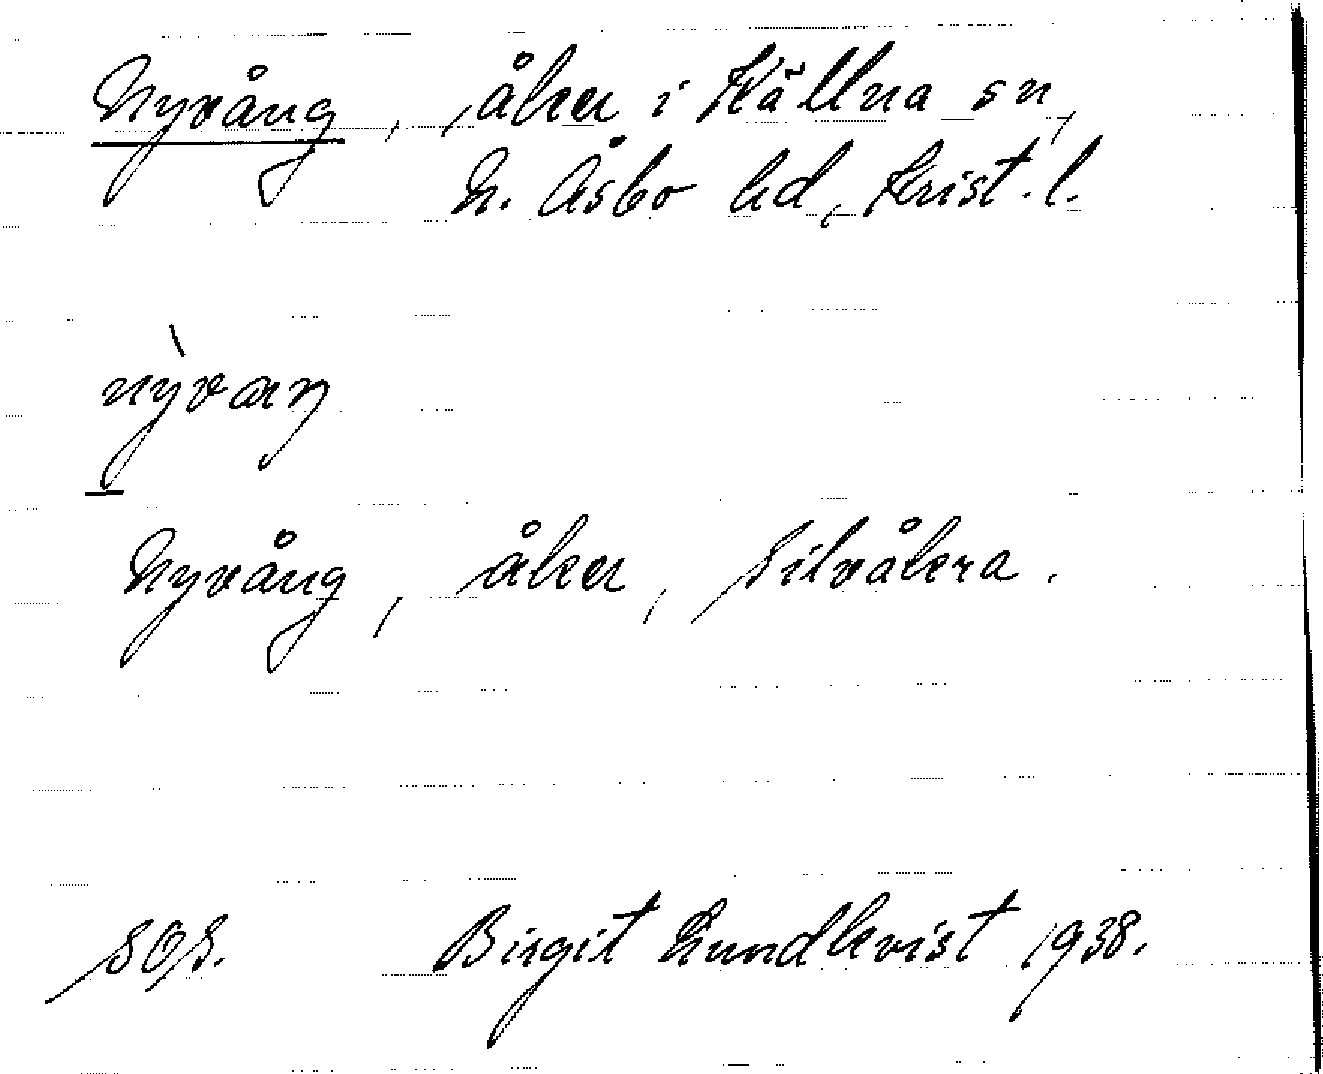 Nyvång, åker i Källna sn,
N. Åsbo hd, Krist. l.
nỳvaŋ
Nyvång, åker, Silvåkra.
Birgit Lundkvist 1938.